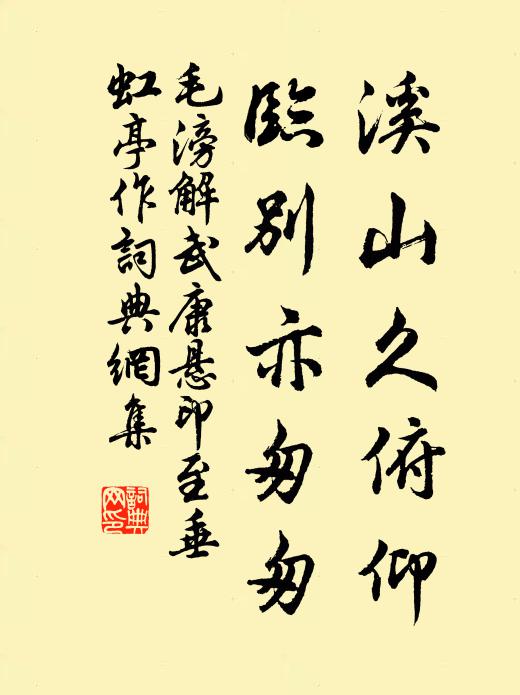 溪山久俯仰
臨別亦匆匆
毛滂解武康悬印至垂
虹亭作詞典網集
詞典網印